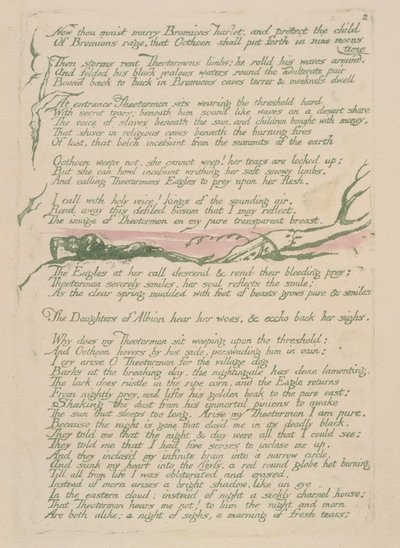 2
Now thou maist marry Bromions harlot, and protect the child
Of Bromions rage, that Oothoon shall put forth in nine moons
time
Then storms rent Theotormons limbs; he rolld his waves around,
And folded his black jealous waters round the adulterate pair
Bound back to back in Bromions caves terror & meekness dwell
At entrance Theotormon sits wearing the threshold hard
With secret tears; beneath him sound like waves on a desart shore
The voice of slaves beneath the sun, and children bought with money,
That shiver in religious caves beneath the burning fires
Of lust, that belch incessant from the summits of the earth
Oothoon weeps not: she cannot weep! her tears are locked up;
But she can howl incessant writhing her soft snowy limbs,
And calling Theotormons Eagles to prey upon her flesh.
I call with holy voice! kings of the sounding air,
Rend away this defiled bosom that I may reflect,
The image of Theotormon on my pure transparent breast.
The Eagles at her call descend & rend their bleeding prey;
Theotormon severely smiles, her soul reflects the smile;
As the clear spring mudded with feet of beasts grows pure & smiles
The Daughters of Albion hear her woes, & eccho back her sighs.
Why does my Theotormon sit weeping upon the threshold;
And Oothoon hovers by his side, perswading him in vain:
I cry arise O Theotormon for the village dog
Barks at the breaking day, the nightingale has done lamenting.
The lark does rustle in the ripe corn, and the Eagle returns
From nightly prey, and lifts his golden beak to the pure east;
Shaking the dust from his immortal pinions to awake
The sun that sleeps too long. Arise my Theotormon I am pure.
Because the night is gone that clos'd me in its deadly black.
They told me that the night & day were all that I could see;
They told me that I had five senses to inclose me up,
And they inclos'd my infinite brain into a narrow circle,
And sunk my heart into the Abyss, a red round globe hot burning
Till all from life I was obliterated and erased.
Instead of morn arises a bright shadow, like an eye
In the eastern cloud: instead of night a sickly charnel house;
That Theotormon hears me not! to him the night and morn
Are both alike: a night of sighs, a morning of fresh tears;